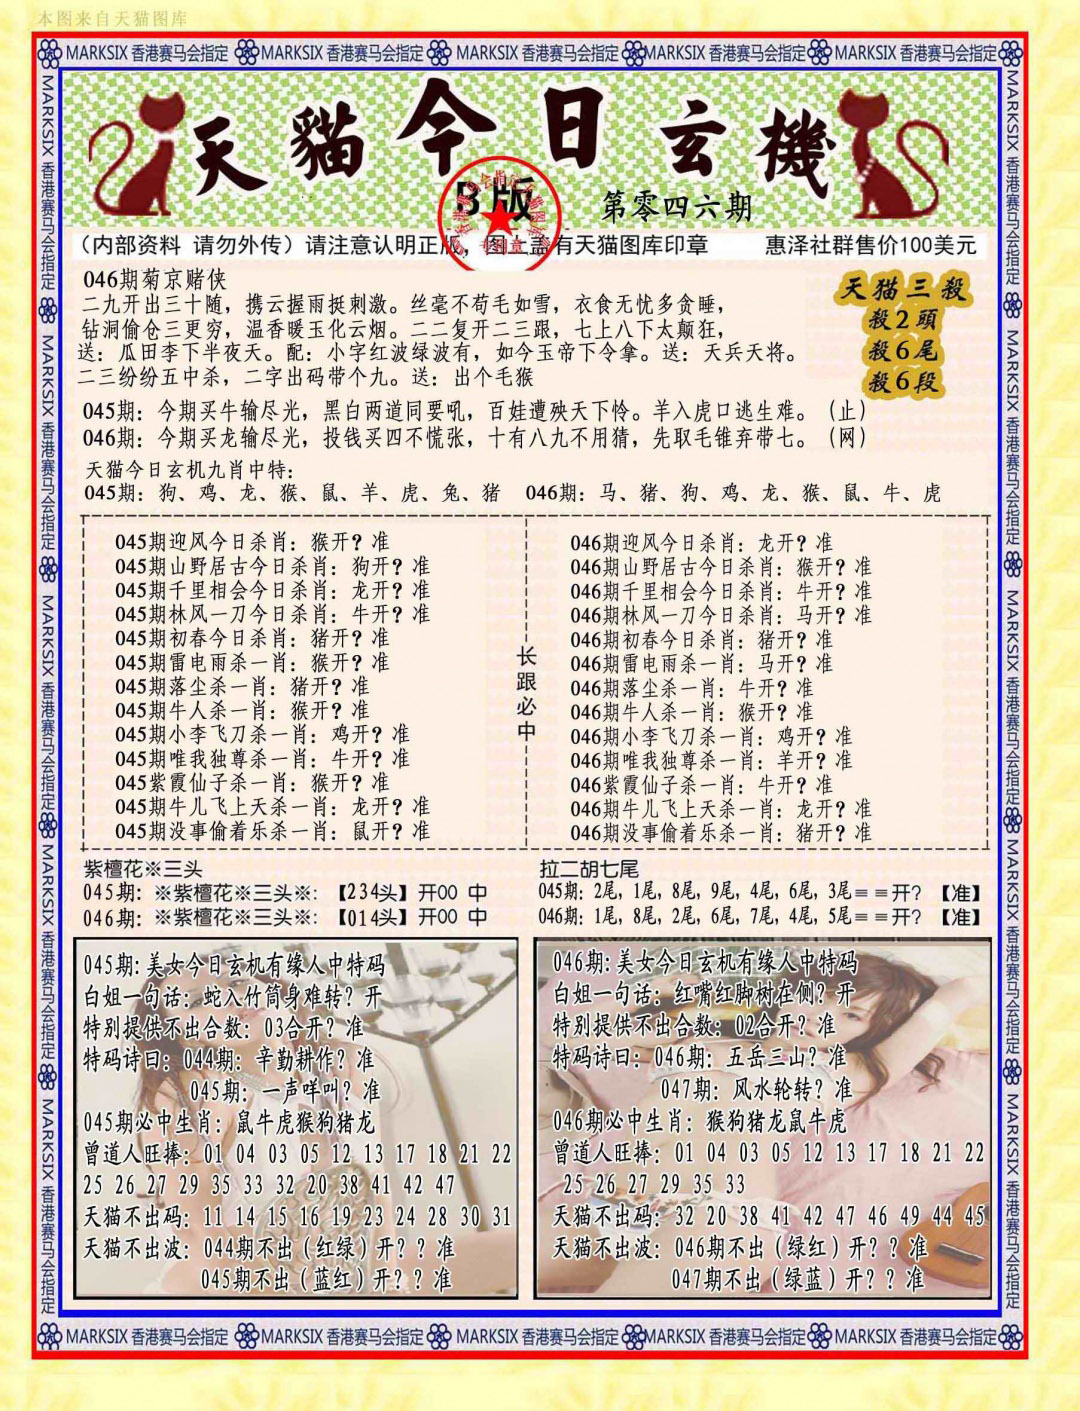 本图来自天猫图库
MARKSIX 香港赛马会指定 MARKSIX 香港赛马会指定 MARKSIX 香港赛马会指定 MARKSIX 香港赛马会指定 MARKSIX 香港赛马会指定
天貓今日玄機
B版
第零四六期
（内部资料 请勿外传）请注意认明正版，图上盖有天猫图库印章 惠泽社群售价100美元
046期菊京赌侠
二九开出三十随，携云握雨挺刺激。丝毫不苟毛如雪，衣食无忧多贪睡，
钻洞偷仓三更穷，温香暖玉化云烟。二二复开二三跟，七上八下太颠狂，
送：瓜田李下半夜天。配：小字红波绿波有，如今玉帝下令拿。送：天兵天将。
二三纷纷五中杀，二字出码带个九。送：出个毛猴
天猫三殺
殺2頭
殺6尾
殺6段
045期：今期买牛输尽光，黑白两道同要吼，百娃遭殃天下怜。羊入虎口逃生难。（止）
046期：今期买龙输尽光，投钱买四不慌张，十有八九不用猜，先取毛锥弃带七。（网）
天猫今日玄机九肖中特：
045期：狗、鸡、龙、猴、鼠、羊、虎、兔、猪 046期：马、猪、狗、鸡、龙、猴、鼠、牛、虎
045期迎风今日杀肖：猴开？准
045期山野居古今日杀肖：狗开？准
045期千里相会今日杀肖：龙开？准
045期林风一刀今日杀肖：牛开？准
045期初春今日杀肖：猪开？准
045期雷电雨杀一肖：猴开？准
045期落尘杀一肖：猪开？准
045期牛人杀一肖：猴开？准
045期小李飞刀杀一肖：鸡开？准
045期唯我独尊杀一肖：牛开？准
045紫霞仙子杀一肖：猴开？准
045期牛儿飞上天杀一肖：龙开？准
045期没事偷着乐杀一肖：鼠开？准
长跟必中
046期迎风今日杀肖：龙开？准
046期山野居古今日杀肖：猴开？准
046期千里相会今日杀肖：牛开？准
046期林风一刀今日杀肖：马开？准
046期初春今日杀肖：猪开？准
046期雷电雨杀一肖：马开？准
046期落尘杀一肖：牛开？准
046期牛人杀一肖：猴开？准
046期小李飞刀杀一肖：鸡开？准
046期唯我独尊杀一肖：羊开？准
046紫霞仙子杀一肖：牛开？准
046期牛儿飞上天杀一肖：龙开？准
046期没事偷着乐杀一肖：猪开？准
紫檀花※三头
045期：※紫檀花※三头※：【234头】开00 中
046期：※紫檀花※三头※：【014头】开00 中
拉二胡七尾
045期：2尾，1尾，8尾，9尾，4尾，6尾，3尾＝＝开？【准】
046期：1尾，8尾，2尾，6尾，7尾，4尾，5尾＝＝开？【准】
045期:美女今日玄机有缘人中特码
白姐一句话：蛇入竹筒身难转？开
特别提供不出合数：03合开？准
特码诗曰：044期：辛勤耕作？准
045期：一声咩叫？准
045期必中生肖：鼠牛虎猴狗猪龙
曾道人旺捧：01 04 03 05 12 13 17 18 21 22
25 26 27 29 35 33 32 20 38 41 42 47
天猫不出码：11 14 15 16 19 23 24 28 30 31
天猫不出波：044期不出（红绿）开？？准
045期不出（蓝红）开？？准
046期:美女今日玄机有缘人中特码
白姐一句话：红嘴红脚树在侧？开
特别提供不出合数：02合开？准
特码诗曰：046期：五岳三山？准
047期：风水轮转？准
046期必中生肖：猴狗猪龙鼠牛虎
曾道人旺捧：01 04 03 05 12 13 17 18 21 22
25 26 27 29 35 33
天猫不出码：32 20 38 41 42 47 46 49 44 45
天猫不出波：046期不出（绿红）开？？准
047期不出（绿蓝）开？？准
MARKSIX 香港赛马会指定 MARKSIX 香港赛马会指定 MARKSIX 香港赛马会指定 MARKSIX 香港赛马会指定 MARKSIX 香港赛马会指定